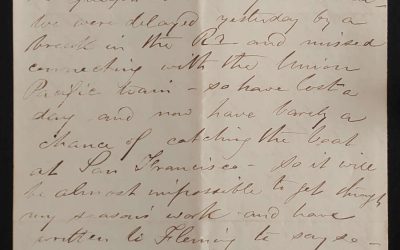 we were delayed yesterday by a
break in the RR and missed
connecting with the Union
Pacific train - so have lost a
day and now have barely a
chance of catching the boat
at San Francisco - so it will
be almost impossible to get through
my season's work and have
written to Fleming to say so -